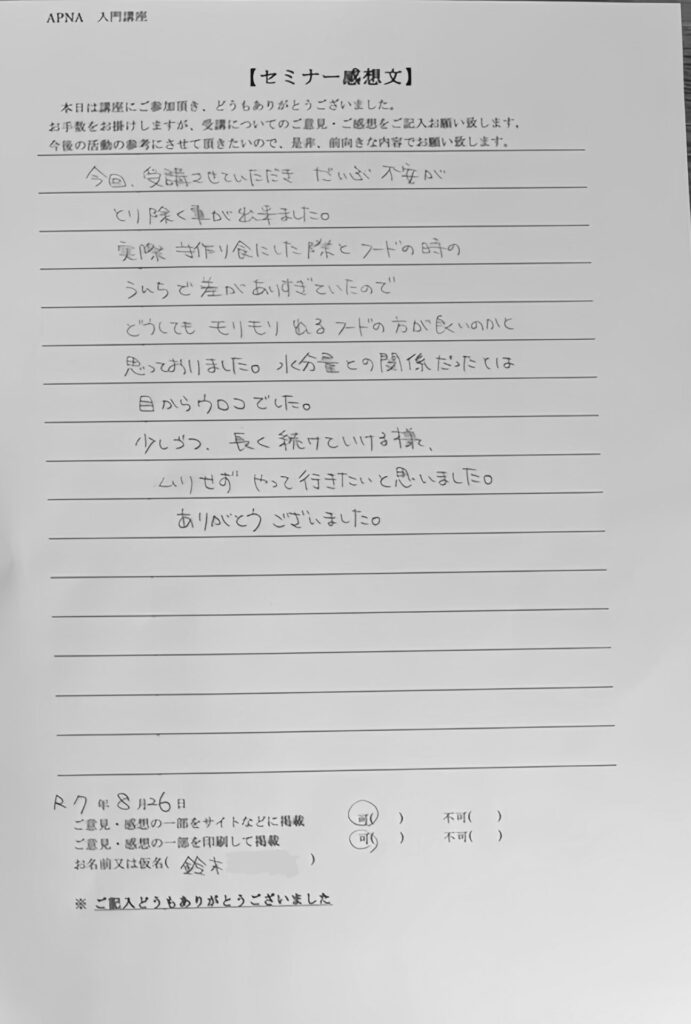 APNA 入門講座
【セミナー感想文】
本日は講座にご参加頂き、どうもありがとうございました。
お手数をお掛けしますが、受講についてのご意見・ご感想をご記入お願い致します。
今後の活動の参考にさせて頂きたいので、是非、前向きな内容でお願い致します。
今回、受講させていただき だいぶ 不安が
とり除く事が出来ました。
実際 手作り食にした際と フードの時の
うんちで 差がありすぎていたので
どうしても モリモリ 出る フードの方が良いのかと
思っておりました。水分量との関係だったとは
目からウロコでした。
少しづつ、長く続けていける様、
ムリせず やって行きたいと思いました。
ありがとう ございました。
R7年8月26日
ご意見・感想の一部をサイトなどに掲載 可( ) 不可( )
ご意見・感想の一部を印刷して掲載 可( ) 不可( )
お名前又は仮名( 鈴木 )
※ ご記入どうもありがとうございました